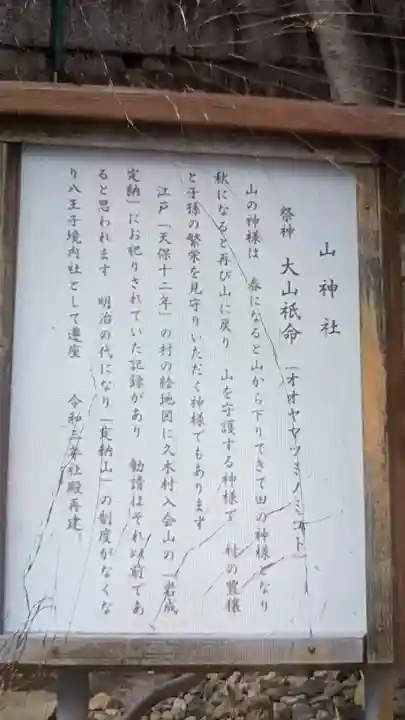 山神社
祭神　大山祇命　(オオヤマツミノミコト)
山の神様は　春になると山から下りてきて田の神様となり
秋になると再び山に戻り　山を守護する神様で　村の豊穣
と子孫の繁栄を見守りいただく神様でもあります
江戸「天保十二年」の村の絵地図に久木村入会山の「岩成
定納」にお祀りされていた記録があり　勧請はそれ以前であ
ると思われます　明治の代になり「定納山」の制度がなくな
り八王子境内社として遷座　令和三年社殿再建。